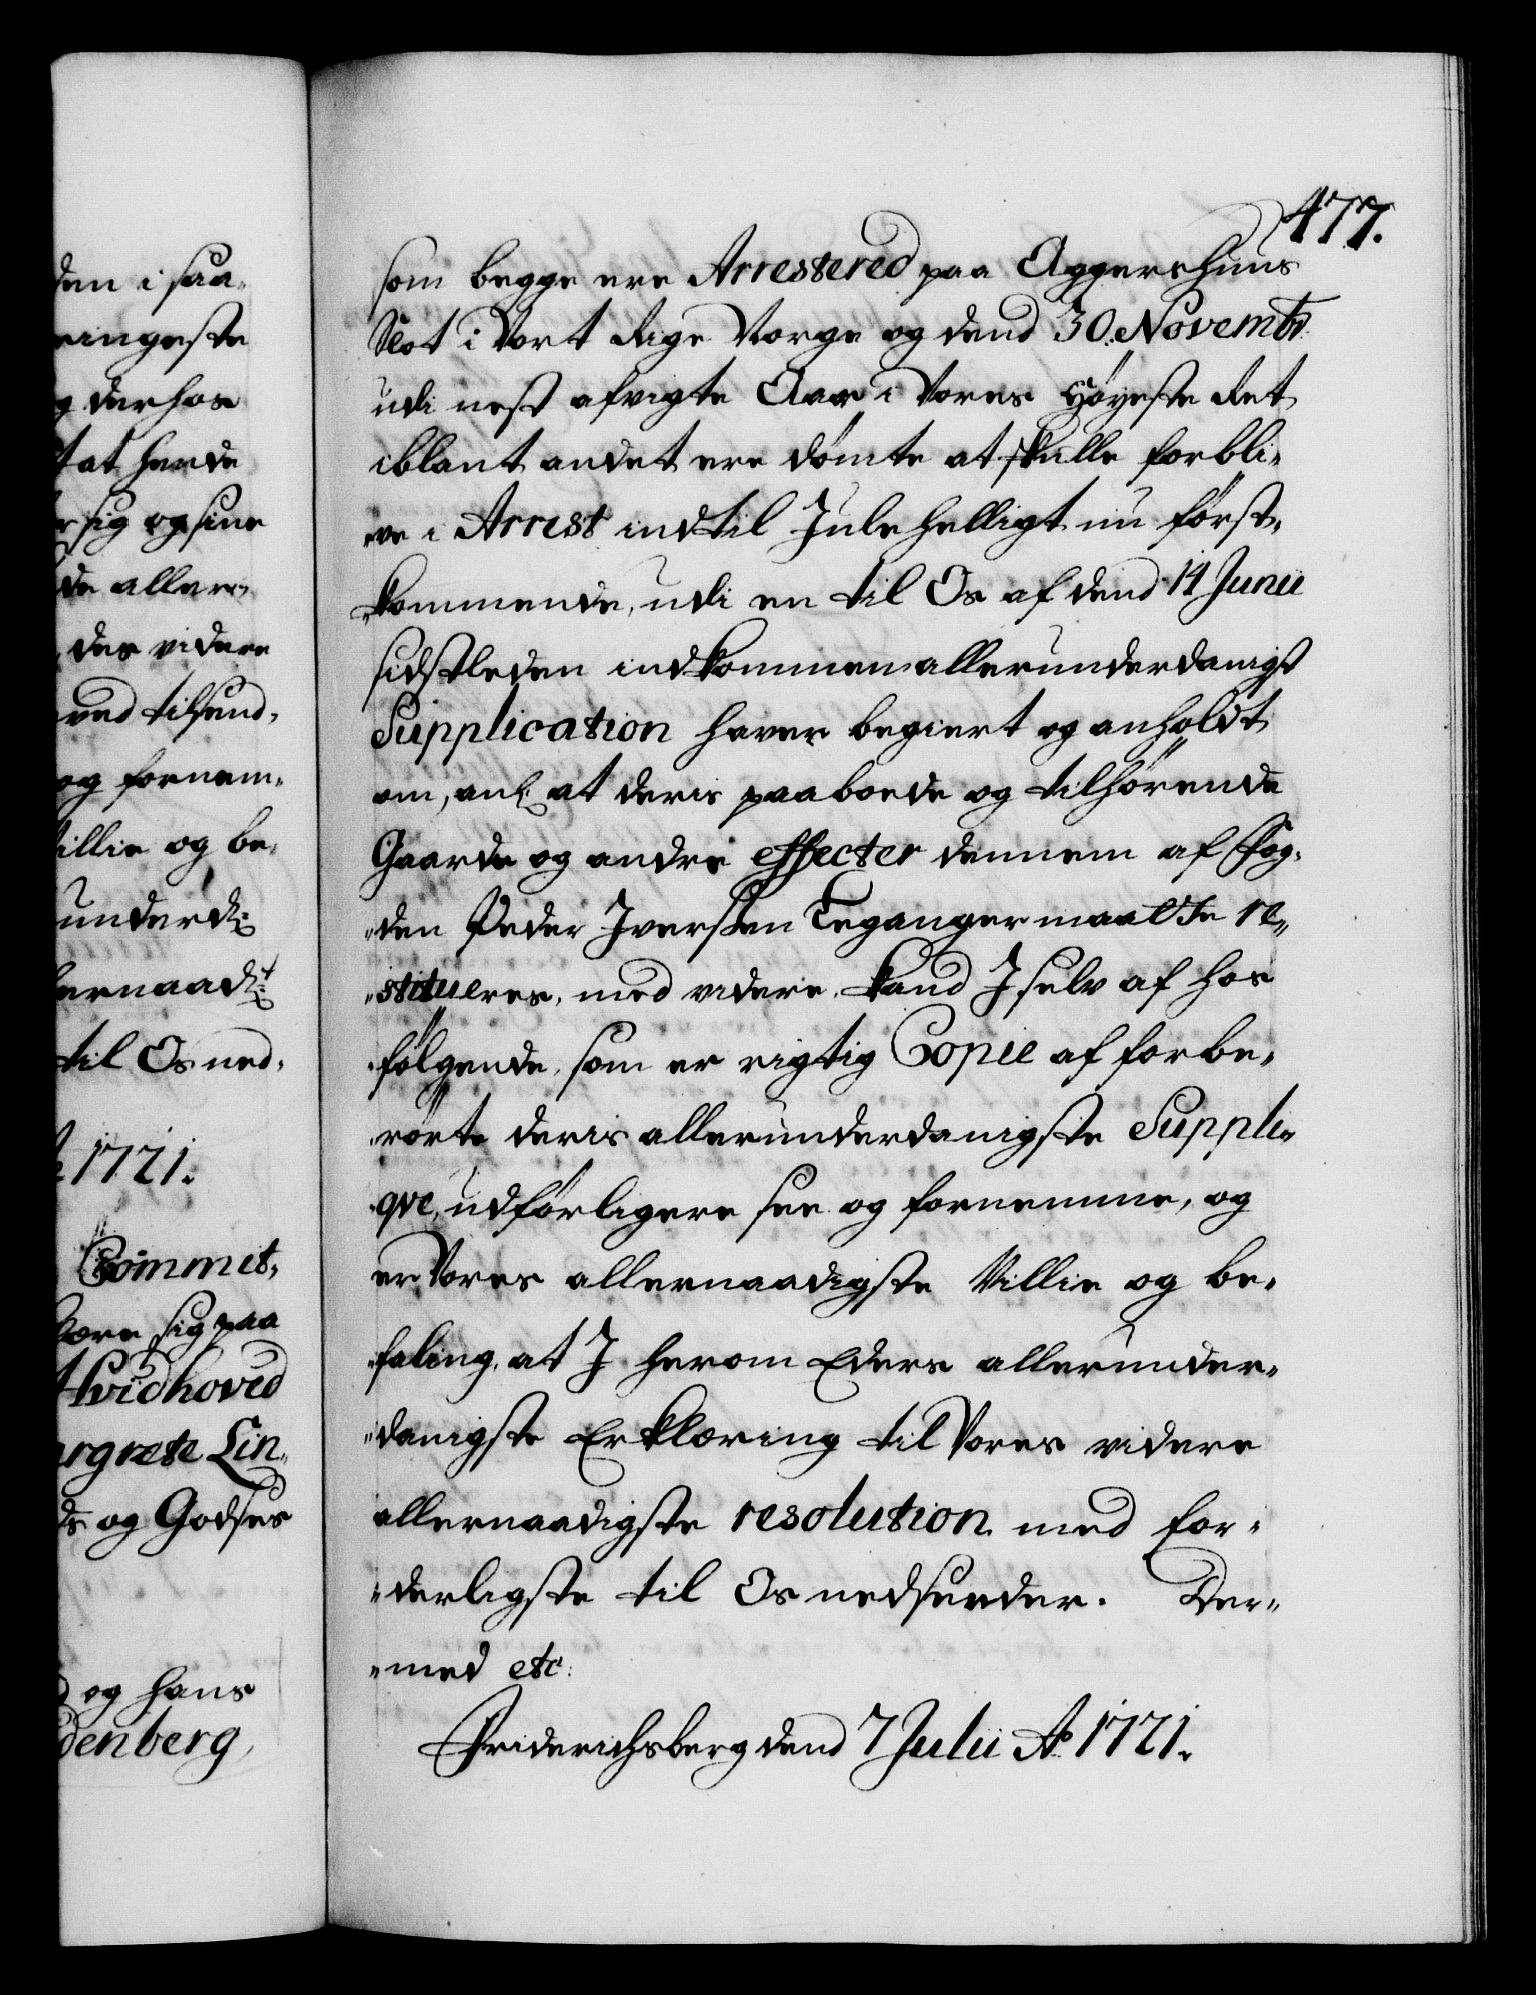 den i saa-
ringeste
g derhos
t at hende
r sig og sine
de aller-
des videre
ved tilsend-
og fornem-
illie og be-
underd:
ernaadt:
til Os ned-
1721.
Commit-
klære sig paa
Hvidhoved
argrete Lin-
ds og Godses
og hans
denberg,
477.
som begge ere Arrestered paa Aggershuus
Slot i Vort Rige Norge og dend 30. Novembr.
udi nest afvigte Aar i Vores Höyeste Ret
iblant andet ere dömte at skulle forbli-
ve i Arrest indtil Julehelligt nu först-
kommende, udi en til Os af dend 14 Junii
sidstleden indkommen allerunderdanigst
Supplication haver begiert og anholdt
om, anl: at deris paaboede og tilhörende
Gaarde og andre effecter dennem af Fog-
den Peder Iversen Teganger maatte re-
stitueres, med videre, kand I selv af hos
fölgende, som er rigtig Copie af forbe-
rörte deris allerunderdanigste Suppli-
qve, udförligere see og fornemme, og
er Vores allernaadigste Villie og be-
faling, at I herom Eders allerunder-
danigste Erklæring til Vores videre
allernaadigste resolution med for-
derligste til Os nedsender. Der-
med etc:
Friderichsberg dend 7 Julii Ao 1721.